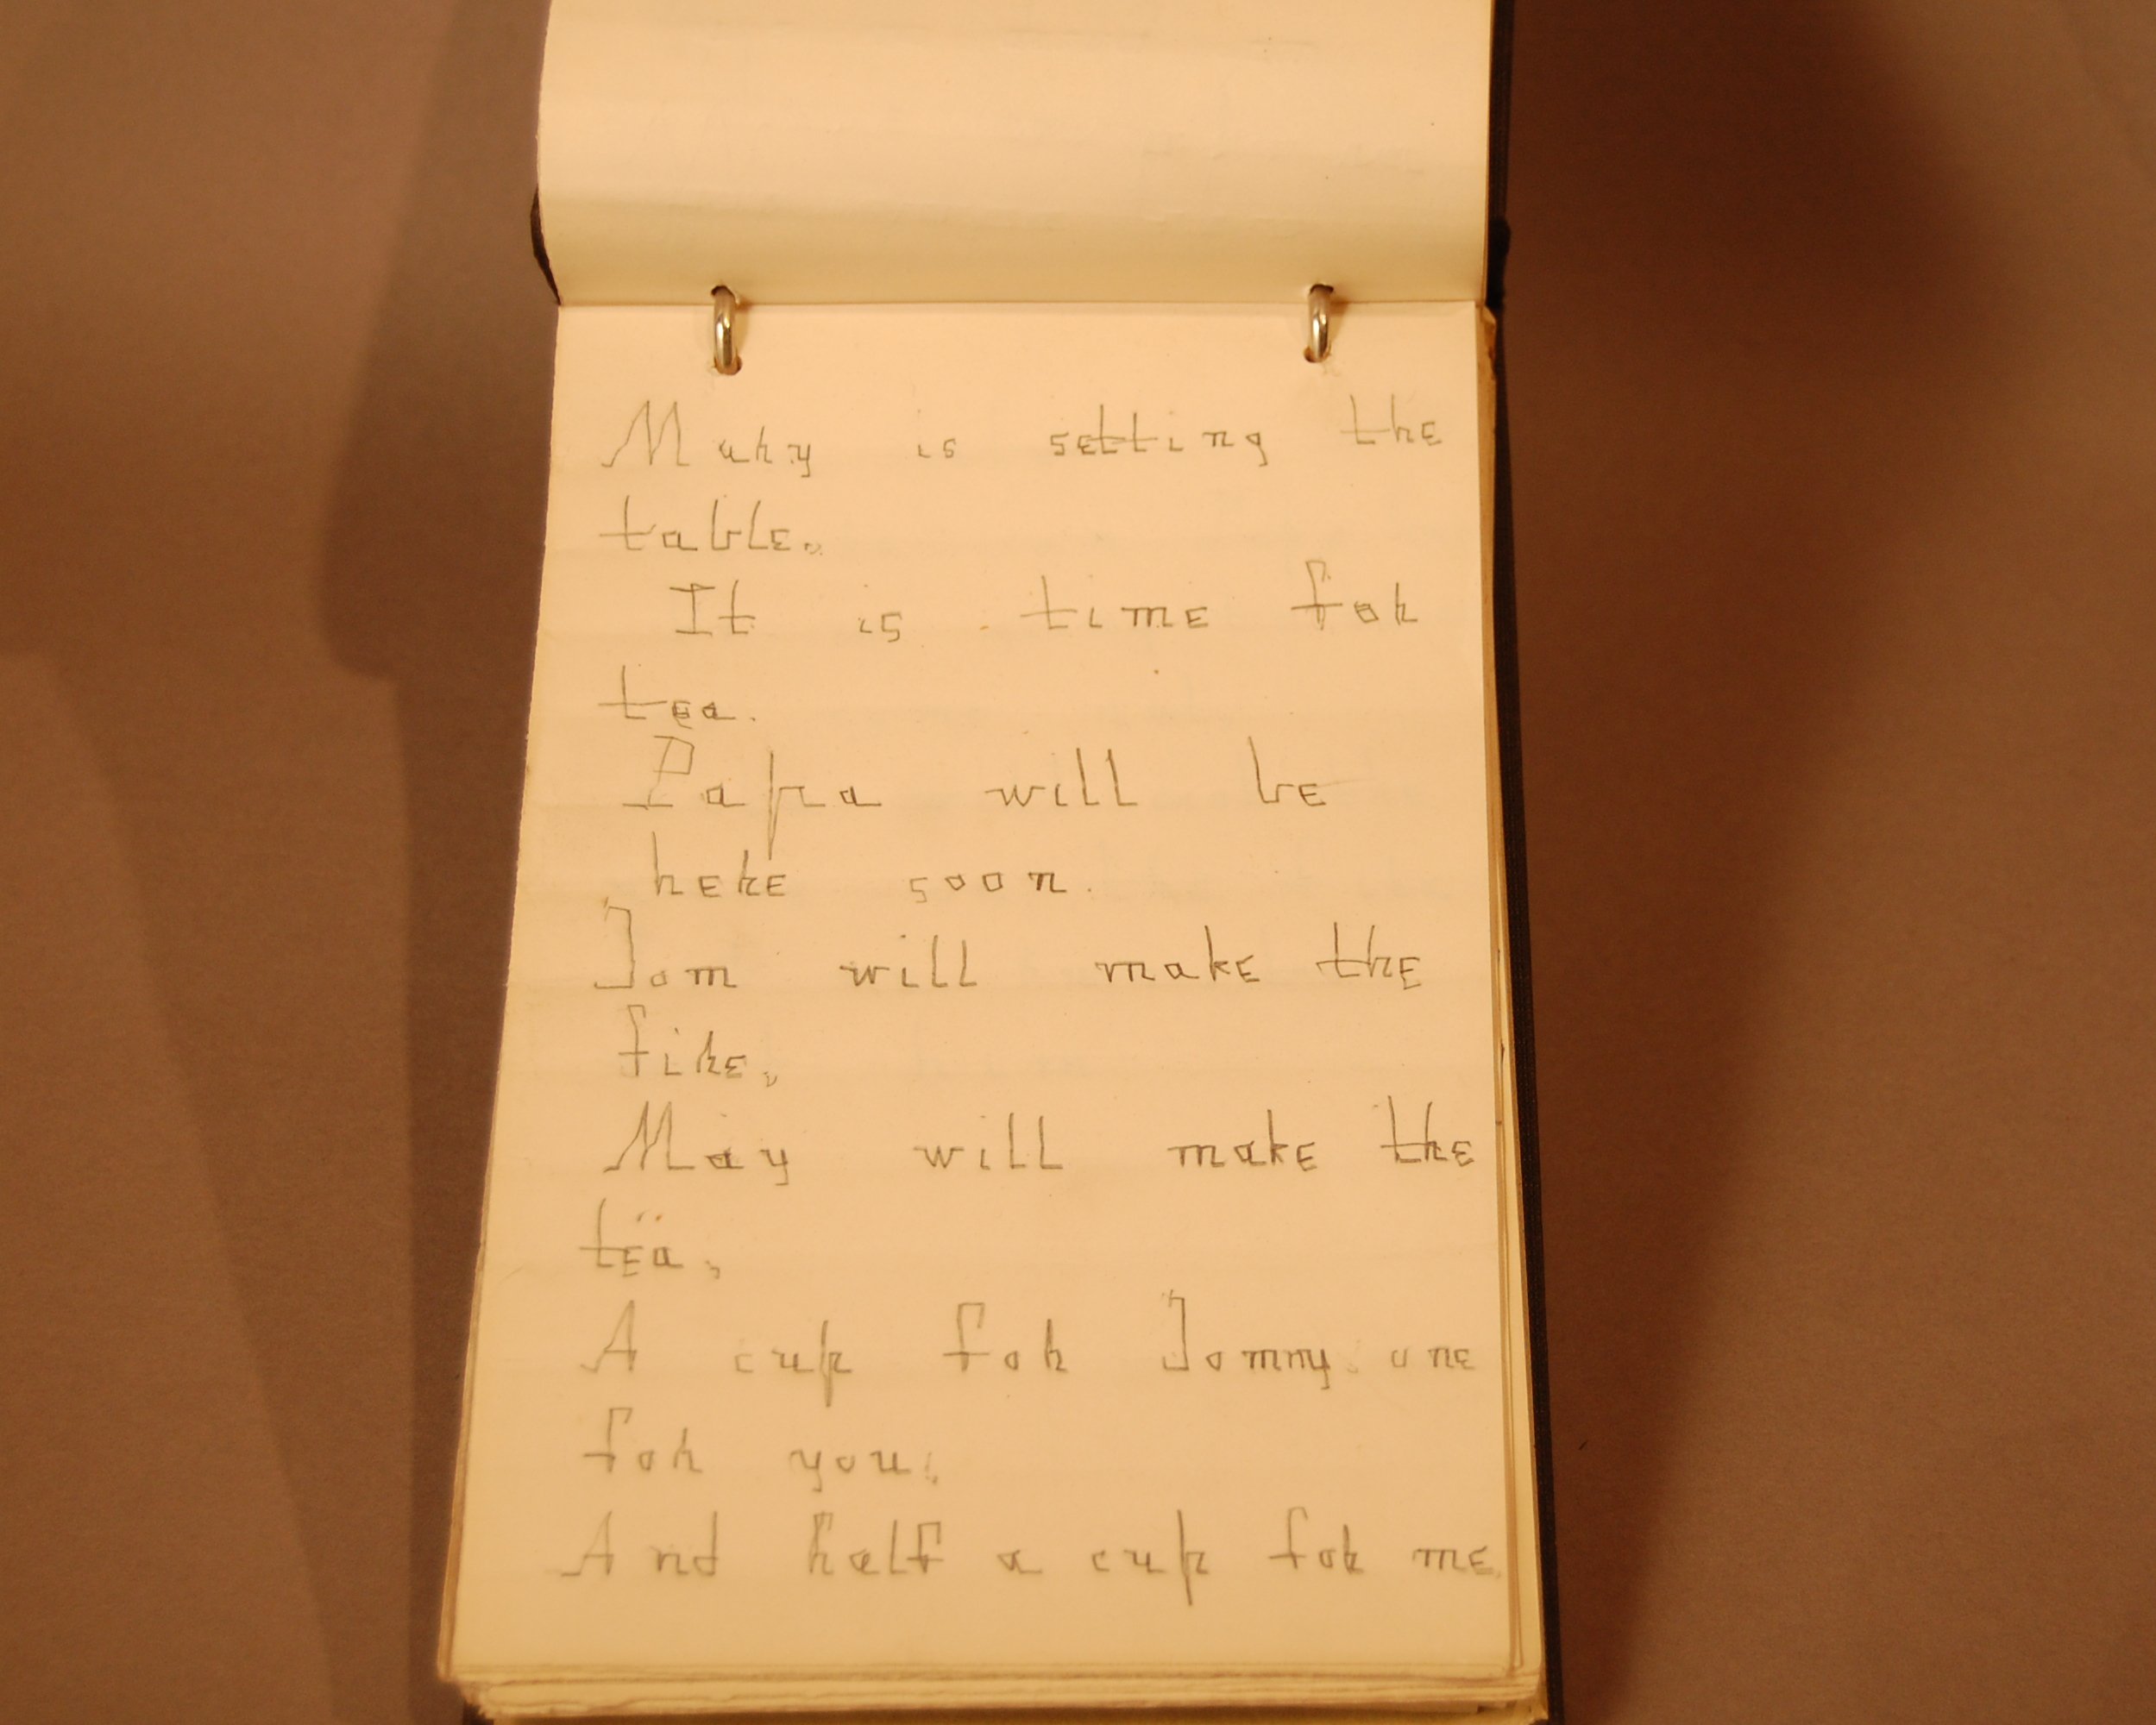 Mary is setting the
table.
It is time for
tea.
Papa will be
here soon.
Tom will make the
fire.
May will make the
tea,
A cup for Tommy one
for you,
And half a cup for me.